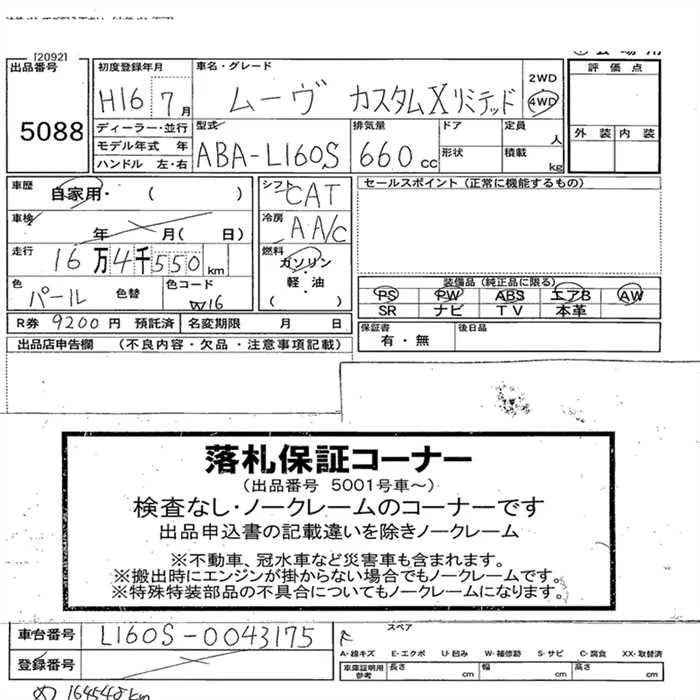 [20921
会場用
出品番号 初度登録年月 車名・グレード 評価点
5088 H16 7月 ムーヴ カスタムXリミテッド 2WD 4WD
ディーラー・並行 型式 排気量 ドア 定員 人 外装 内装
モデル年式 年 ABA-L160S 660cc 形状 積載 kg
ハンドル 左・右
車歴 自家用・( ) シフト CAT セールスポイント(正常に機能するもの)
車検 年 月( 日) 冷房 AA/C
走行 16万4千550km 燃料 ガソリン
軽・油
( )
色 パール 色替 色コード W16 装備品(純正品に限る)
PS PW ABS エアB AW
SR ナビ TV 本革
R券 9200円 預託済 名変期限 月 日 保証書 有・無 後日品
出品店申告欄 (不良内容・欠品・注意事項記載)
落札保証コーナー
(出品番号 5001号車〜)
検査なし・ノークレームのコーナーです
出品申込書の記載違いを除きノークレーム
※不動車、冠水車など災害車も含まれます。
※搬出時にエンジンが掛からない場合でもノークレームです。
※特殊特装部品の不具合についてもノークレームになります。
車台番号 L160S-0043175 スペア
A・線キズ E・エクボ U・凹み W・補修跡 S・サビ C・腐食 XX・取替済
登録番号 車庫証明用参考 長さ cm 幅 cm 高さ cm
164548km